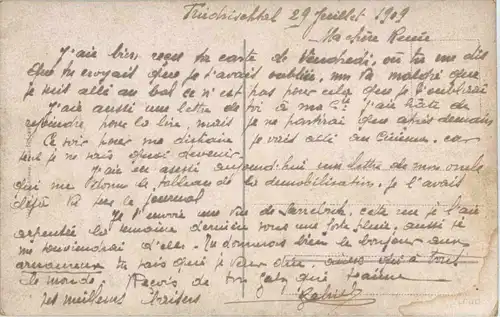 29 Juillet 1919
Ma chère Renée
J'ai bien reçu ta carte de Vendredi, où tu me dis
que tu croyais que je t'avais oubliée, malgré que
je suis allé au bal ce n'est pas pour cela que je t'oublierai
J'ai aussi une lettre de toi à ma Cie. J'ai hâte de
pour la lire, mais je ne partirai que après demain
Ce soir pour me distraire je vais allé au Cinéma, car
je ne sais quoi devenir.
J'ai eu aussi aujourd'hui une lettre de mon oncle
qui me donne le tableau de la démobilisation, je l'avais
déjà vu sur le journal
Je t'envoie une vue de Sarrebrück, cette rue je l'ai
arpentée la semaine dernière sous une forte pluie, aussi je
me souviendrai d'elle. Tu donneras bien le bonjour aux
amoureux tu sais qui je veux dire, ainsi qu'à tout
le monde. Reçois de ton Gaby qui t'aime
ses meilleurs baisers
Gabriel